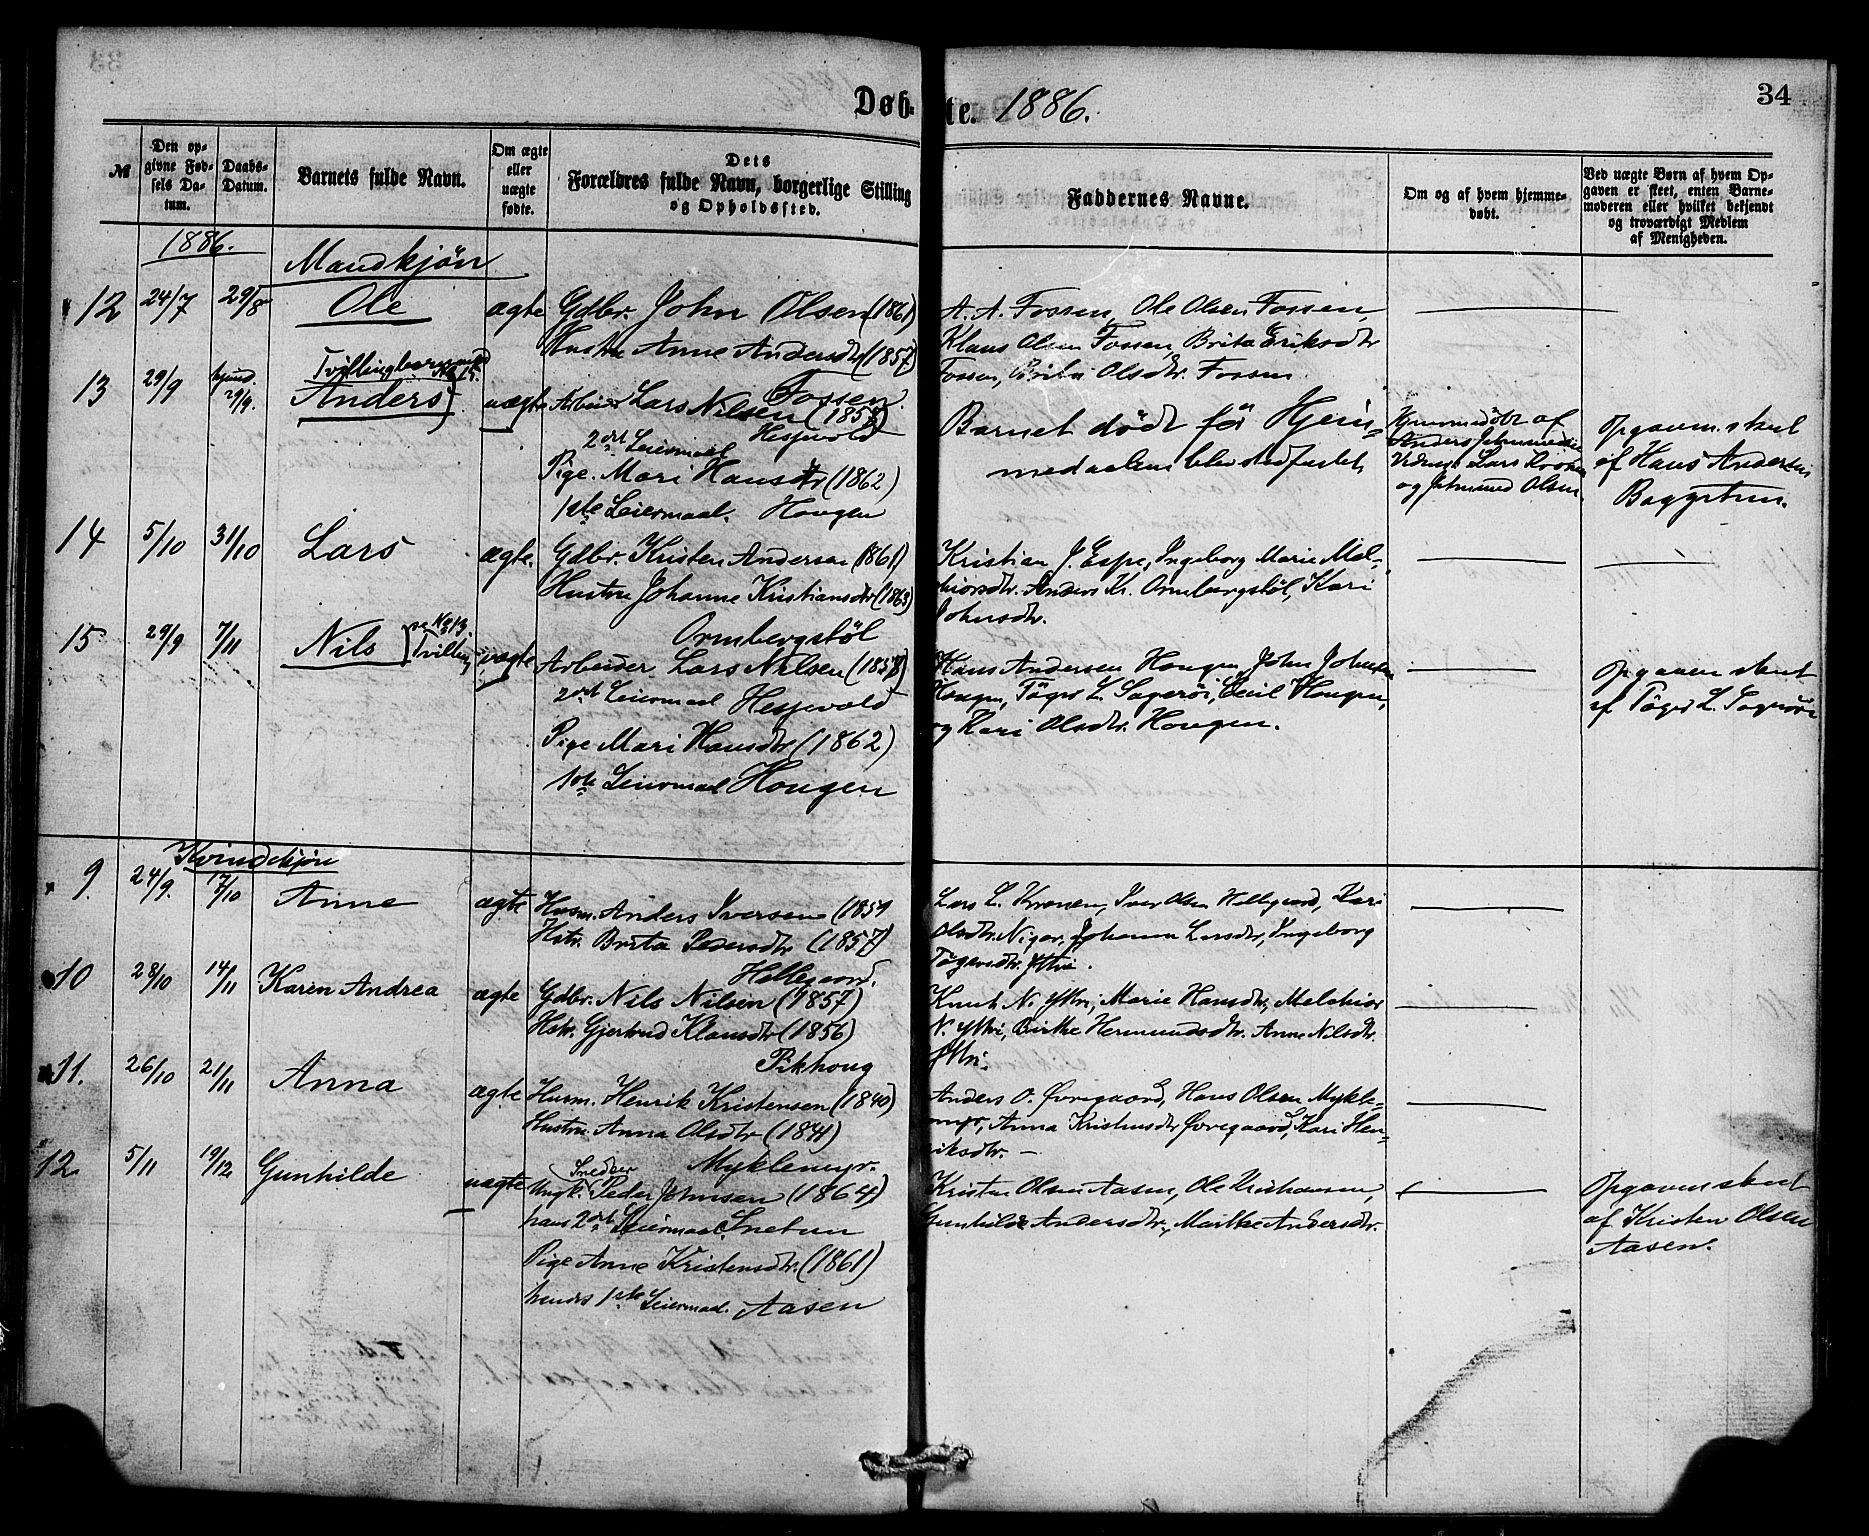 Døbte. 1886.
34
№
Den opgivne Fødsels Datum.
Daabs-Datum.
Barnets fulde Navn.
Om ægte eller uægte fødte.
Dets Forældres fulde Navn, borgerlige Stilling og Opholdssted.
Faddernes Navne.
Om og af hvem hjemmedøbt.
Ved uægte Børn af hvem Opgaven er skeet, enten Barnemoderen eller hvilket bekjendt og troværdigt Medlem af Menigheden.
1886.
Mandkjön
12 24/7 29/8 Ole ægte Gdbr. John Olsen (1861)
Hustru Anne Andersdtr (1857)
Fossen.
A. A. Fossen, Ole Olsen Fossen,
Klaus Olsen Fossen, Brita Eriksdtr
Fossen, Brita Olsdtr. Fossen
13 29/9 hjmd. 29/9. Tvillingbarn
Anders uægte Arbeider Lars Nilsen (1858)
Hesjevold
2det Leiermaal
Pige. Mari Hansdtr (1862)
1ste Leiermaal. Hougen
Barnet dödt för Hjem-
medaaben blev stadfæstet
Hjemmedöbt af
Anders
Lars
og Jetmund Olsen.
Opgaven skeet
af Hans Andersen
14 5/10 31/10 Lars ægte. Gdbr. Kristen Andersen (1861)
Hustru Johanne Kristiansdtr (1863)
Ormbergstöl
Kristian J. Espe, Ingeborg Marie Mel-
hiorsdtr. Anders Kr. Ormbergstöl, Kari
Johnsdtr.
15 29/9 7/11 Nils se No 13. Tvilling uægte Arbeider. Lars Nilsen (1858)
2det Leiermaal Hesjevold
Pige Mari Hansdtr (1862)
1ste Leiermaal Hougen
Hans Andersen Hougen, John Johnsen
Hougen, Töger L. Sageröi, Hougen,
og Kari Olsdtr. Hougen.
Opgaven skeet
af Töger L.
Kvindekjön
9. 24/9. 17/10 Anne ægte Husm. Anders Iversen (1859
Hstr. Brita Pedersdtr (1857)
Hellegaard.
Lars L. Kronen, Iver Olsen Hellegaard, Kari
Olsdtr. Johanna Larsdtr, Ingeborg
Tögersdtr. Yttri.
10 28/10 14/11 Karen Andrea ægte Gdbr. Nils Nilsen (1857)
Hstr. Gjertrud Klausdtr (1856)
Pikhoug
Knut N. Yttri, Marie Hansdtr, Melchior
N. Yttri, Birthe Hermundsdtr. Anne Nilsdtr.
Yttri.
11. 26/10 21/11 Anna ægte Husm. Henrik Kristensen (1840)
Hustru Anna Olsdtr (1841)
Myklemyr.
Anders O. Øvregaard, Hans Olsen Mykle-
myr, Anna Kristensdtr Øvregaard, Kari Hen-
riksdtr.
12 5/11 19/12 Gunhilde uægte Snedker
Ungk. Peder Johnsen (1864)
hans 2det Leiermaal. Snetun
Pige Anne Kristensdtr. (1861)
hendes 1ste Leiermaal. Aasen
Kristen Olsen Aasen, Ole Kristiansen,
Gunhilde Andersdtr, Marthe Andersdtr.
Opgaven skeet
af Kristen Olsen
Aasen.